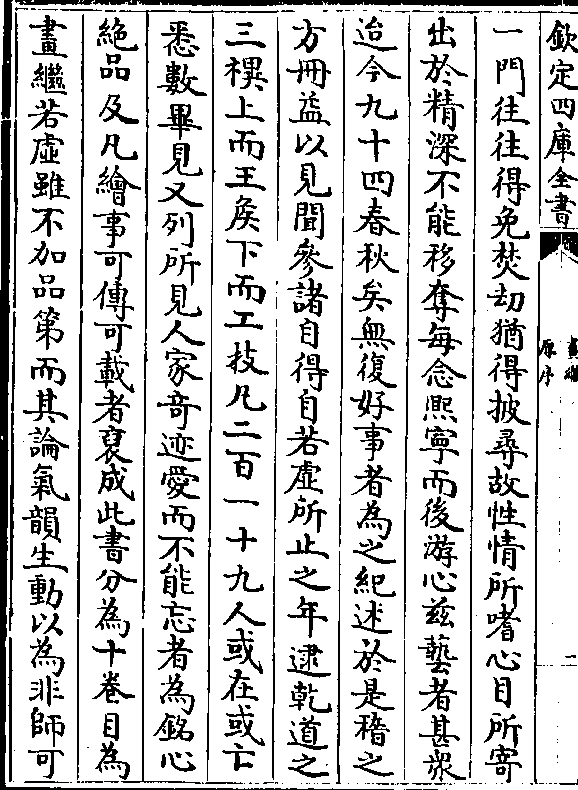 欽定四庫全書
畫繼
原序
二
一門往往得免焚刼猶得披尋故性情所嗜心目所寄
出於精深不能移奪每念熈寧而後游心兹藝者甚衆
迨今九十四春秋矣無復好事者為之紀述於是稽之
方冊益以見聞參諸自得自若虛所止之年逮乾道之
三禩上而王矦下而工技凡二百一十九人或在或亡
悉數畢見又列所見人家竒迹愛而不能忘者為銘心
絶品及凡繪事可傳可載者裒成此書分為十卷目為
畫繼若虛雖不加品第而其論氣韻生動以為非師可